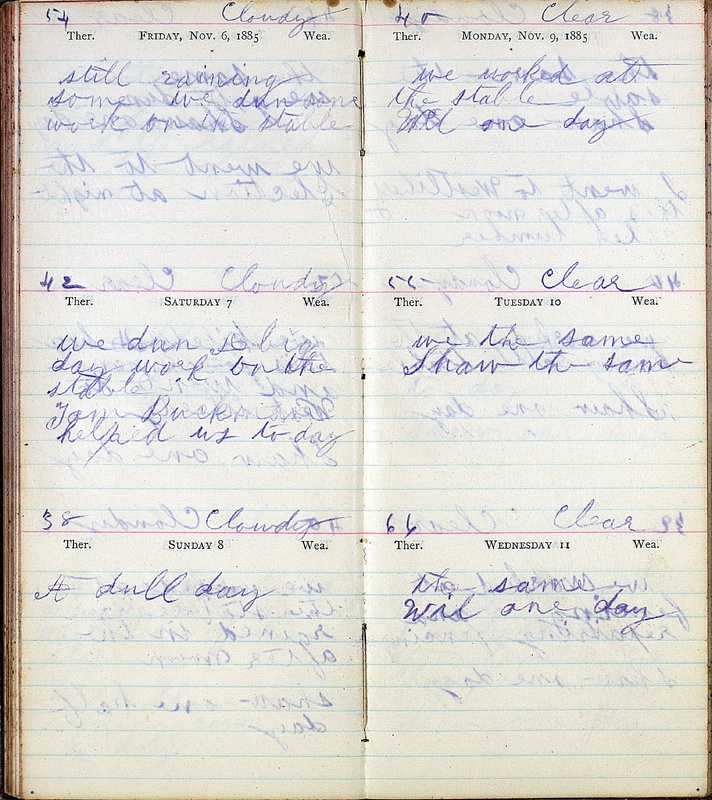 54 Cloudy
Ther. FRIDAY, NOV. 6, 1885 Wea.
still raining
some we dun some
work on the stable
42 Cloudy
Ther. SATURDAY 7 Wea.
we dun a big
day work on the
stable
Tom Buck
helped us to day
38 Cloudy
Ther. SUNDAY 8 Wea.
A dull day
40 Clear
Ther. MONDAY, NOV. 9, 1885 Wea.
we worked at
the stable
Wil one day
55 Clear
Ther. TUESDAY 10 Wea.
we the same
Shaw the same
66 Clear
Ther. WEDNESDAY 11 Wea.
the same
Wil one day